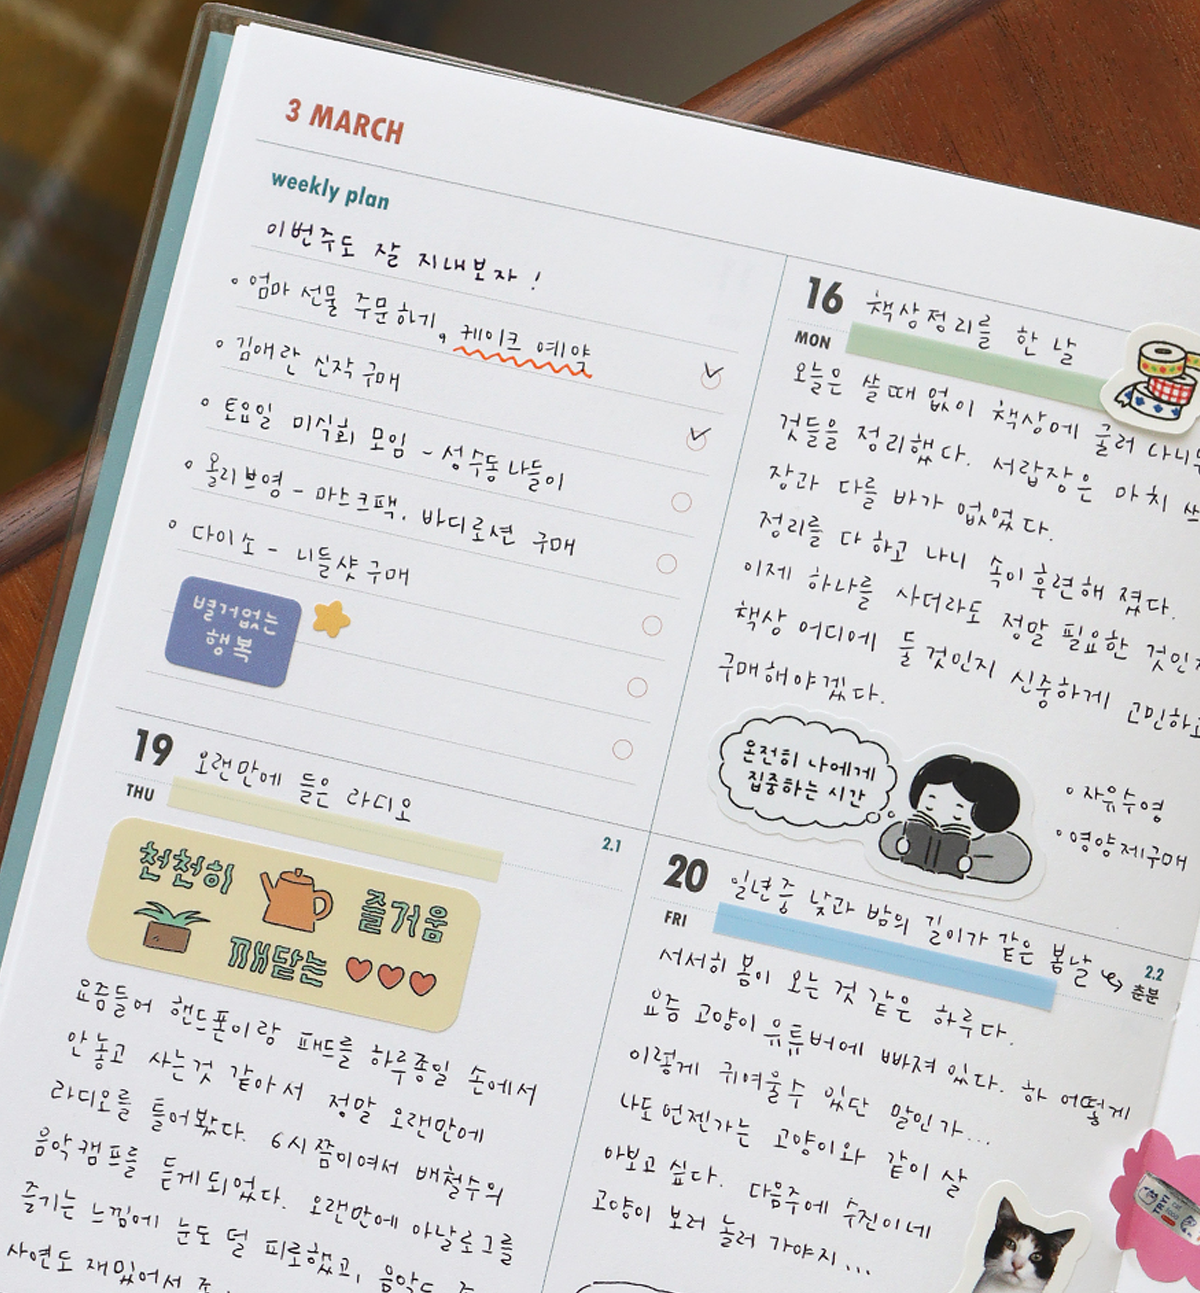 3 MARCH
weekly plan
이번주도 잘 지내보자 !
엄마 선물 주문하기, 케이크 예약
김애란 신작 구매
토요일 미식회 모임 - 성수동 나들이
올리브영 - 마스크팩, 바디로션 구매
다이소 - 니들샷 구매
별거없는
행복
16
MON
책상정리를 한 날
오늘은 쓸때 없이 책상에 굴러 다니는
것들을 정리했다. 서랍장은 마치
장과 다를 바가 없었다.
정리를 다 하고 나니 속이 후련해 졌다.
이제 하나를 사더라도 정말 필요한 것인지
책상 어디에 둘 것인지 신중하게 고민하고
구매해야겠다.
온전히 나에게
집중하는 시간
자유수영
영양제구매
19
THU
오랜만에 들은 라디오
2.1
천천히 즐거움
깨닫는
요즘들어 핸드폰이랑 패드를 하루종일 손에서
안놓고 사는것 같아서 정말 오랜만에
라디오를 틀어봤다. 6시쯤이여서 배철수의
음악캠프를 듣게되었다. 오랜만에 아날로그를
즐기는 느낌에 눈도 덜 피로했고, 음악도
사연도 재밌어서
20
FRI
일년중 낮과 밤의 길이가 같은 봄날
2.2
춘분
서서히 봄이 오는 것 같은 하루다.
요즘 고양이 유튜버에 빠져 있다. 하 어떻게
이렇게 귀여울수 있단 말인가...
나도 언젠가는 고양이와 같이 살
아보고 싶다. 다음주에 수진이네
고양이 보러 놀러 가야지...